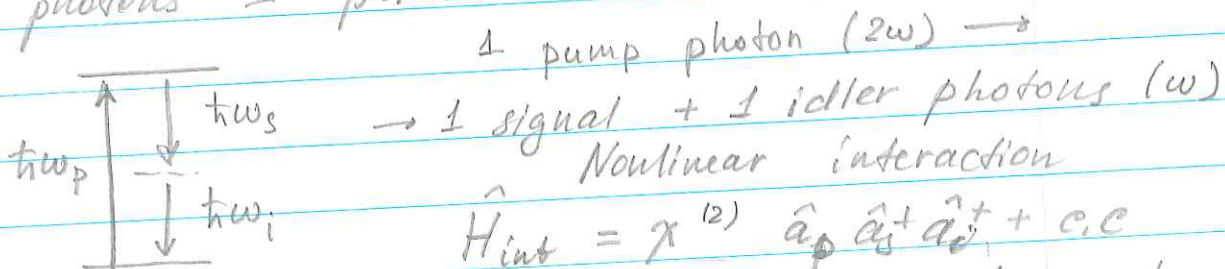 photons
1 pump photon (2ω) →
ħωs → 1 signal + 1 idler photons (ω)
ħωp Nonlinear interaction
ħωi Ĥint = χ⁽²⁾ âp âs⁺ âi⁺ + c.c